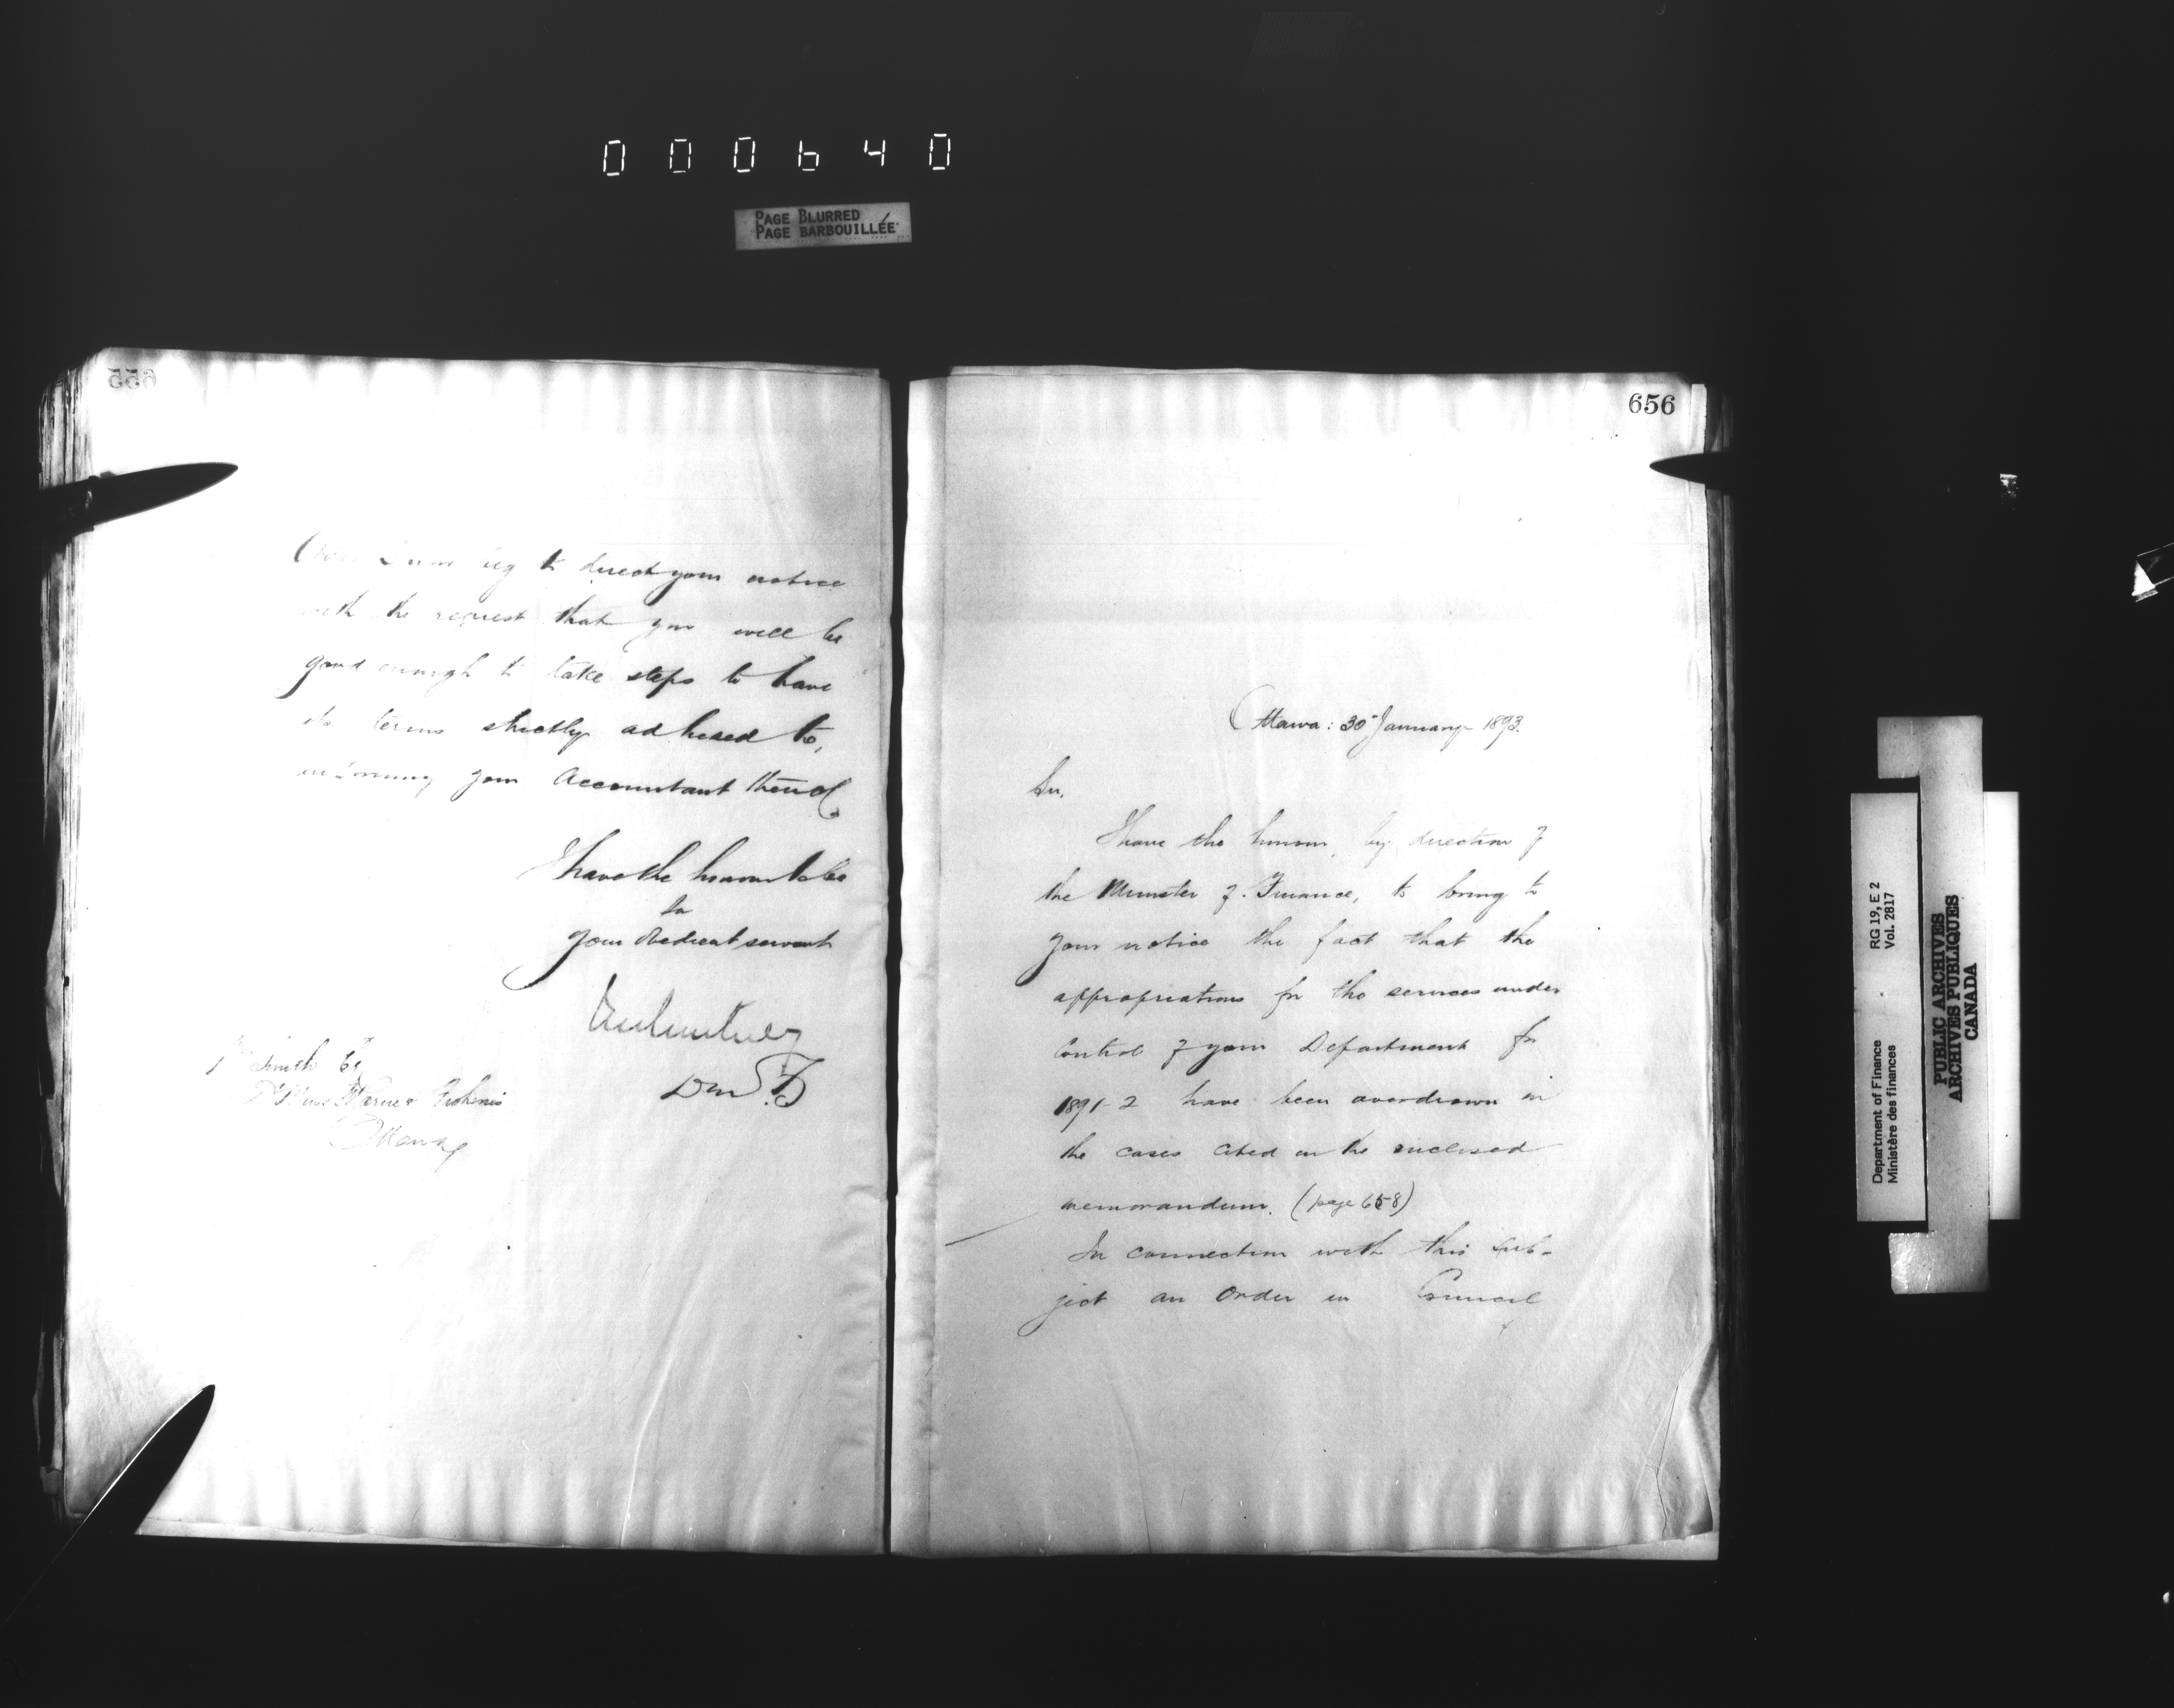 000640
PAGE BLURRED
PAGE BARBOUILLÉE
655
Order I now beg to direct your notice
with the request that you will be
good enough to take steps to have
its terms strictly adhered to,
informing your Accountant thereof
I have the honour to be
Sir
Your obedient servant
DMF
Smith Esq
Marine & Fisheries
Ottawa
656
Ottawa: 30 January 1893.
Sir,
I have the honour, by direction of
the Minister of Finance, to bring to
your notice the fact that the
appropriations for the services under
control of your Department for
1891-2 have been overdrawn in
the cases cited in the enclosed
memorandum. (page 658)
In connection with this sub-
ject an Order in Council
Department of Finance RG 19, E 2
Ministère des finances Vol. 2817
PUBLIC ARCHIVES
ARCHIVES PUBLIQUES
CANADA